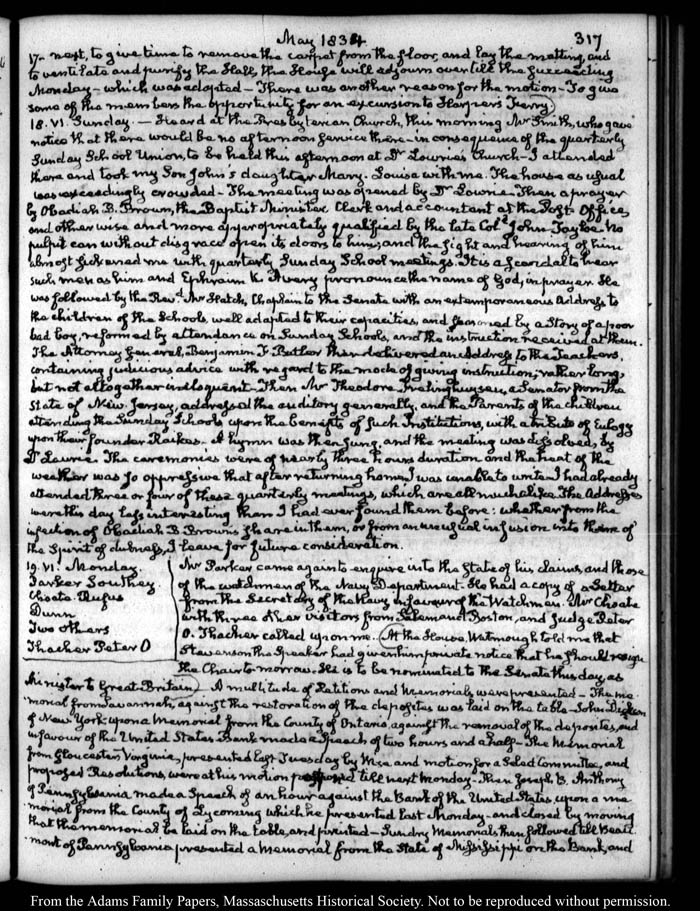 May 1834
317
17. next, to give time to remove the carpet from the floor, and lay the matting, and
to ventilate and purify the Hall, the House will adjourn over till the succeeding
Monday — which was adopted — There was another reason for the motion — To give
some of the members the opportunity for an excursion to Harper's Ferry.
18. VI. Sunday. — Heard at the Presbyterian Church, this morning Mr Smith, who gave
notice that there would be no afternoon service there — in consequence of the quarterly
Sunday School Union, to be held this afternoon at Dr Lowrie's Church — I attended
there and took my Son John's daughter Mary-Louisa with me. The house as usual
was exceedingly crowded — The meeting was opened by Dr Lowrie. Then a prayer
by Obadiah B. Brown, the Baptist Minister Clerk and accountant at the Post-Office,
and otherwise and more appropriately qualified by the late Coll John Tayloe. No
pulpit can without disgrace open its doors to him, and the sight and hearing of him
almost sickened me with quarterly Sunday School meetings. It is a scandal to hear
such men as him and Ephraim K. Avery pronounce the name of God, in prayer. He
was followed by the Revd Mr Hatch, Chaplain to the Senate with an extemporaneous Address to
the children of the Schools, well adapted to their capacities, and seasoned by a Story of a poor
bad boy, reformed by attendance on Sunday Schools, and the instruction received at them.
The Attorney General, Benjamin F. Butler then delivered an Address to the Teachers,
containing judicious advice with regard to the mode of giving instruction, rather long,
but not altogether ineloquent. Then Mr Theodore Frelinghuysen, a Senator from the
State of New-Jersey, addressed the auditory generally, and the Parents of the children
attending the Sunday Schools upon the benefits of such Institutions, with a tribute of Eulogy
upon their founder Raikes. A hymn was then sung, and the meeting was dissolved, by
Dr Laurie. The ceremonies were of nearly three hours duration and the heat of the
weather was so oppressive that after returning home, I was unable to write. I had already
attended three or four of these quarterly meetings, which are all much alike. The Addresses
were this day less interesting than I had ever found them before: whether from the
infection of Obadiah B. Brown's share in them, or from an unusual infusion into them of
the Spirit of dulness, I leave for future consideration.
19. VI. Monday.
Parker Southey.
Choate Rufus
Dunn
Two others
Thacher Peter O
Mr Parker came again to enquire into the State of his claims, and those
of the watchmen of the Navy Department. He had a copy of a Letter
from the Secretary of the Navy in favour of the Watchmen. Mr Choate
with three other visitors from Salem and Boston, and Judge Peter
O. Thacher called upon me. At the House, Watmough told me that
Stevenson the Speaker had given him private notice that he should resign
the Chair to-morrow. He is to be nominated to the Senate this day, as
Minister to Great-Britain — A multitude of Petitions and Memorials were presented — The me-
morial from Savannah, against the restoration of the deposites was laid on the table — John Dickson
of New York, upon a Memorial from the County of Ontario, against the removal of the deposites, and
in favour of the United States Bank made a Speech of two hours and a half — The Memorial
from Gloucester Virginia, presented last Tuesday by Wise and motion for a Select Committee, and
proposed Resolutions, were at his motion postponed till next Monday. Then Joseph B. Anthony
of Pennsylvania made a Speech of an hour against the Bank of the United States, upon a me-
morial from the County of Lycoming which he presented last Monday — and closed by moving
that the memorial be laid on the table, and printed — Sundry Memorials then followed till Beau-
mont of Pennsylvania presented a Memorial from the State of Mississippi on the Bank, and
From the Adams Family Papers, Massachusetts Historical Society. Not to be reproduced without permission.